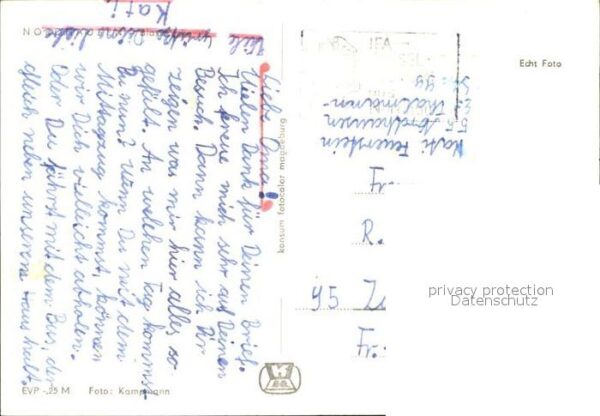 Liebe Oma!
Vielen Dank für Deinen Brief.
Ich freue mich sehr auf Deinen
Besuch. Dann kann ich Dir
zeigen was mir hier alles so
gefällt. An welchen Tag kommst
Du nun? Wenn Du mit dem
Mittagzug kommst, können
wir Dich vielleicht abholen.
Oder Du fährst mit dem Bus, der
gleich neben unserem Haus hält.
Viele Grüße Deine liebe
Kati
konsum fotocolor magdeburg
EVP -,25 M Foto: Kampmann
Echt Foto
IFA
Kati Feuerstein
55 Nordhausen
E.-Thälmann-
Str. 99
R.
95 Z
privacy protection
Datenschutz